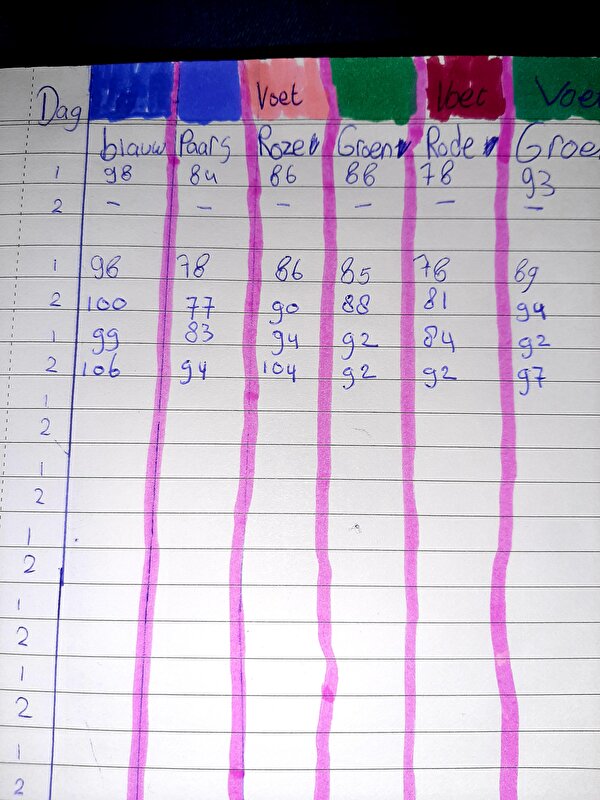 Voet Voet Voet
Dag
blauw Paars Roze Groen Rode Groe
1 98 84 86 88 78 93
2 - - - - - -
1 98 78 86 85 78 89
2 100 77 90 88 81 94
1 99 83 94 92 84 92
2 106 94 104 92 92 97
1
2
1
2
1
2
1
2
1
2
1
2